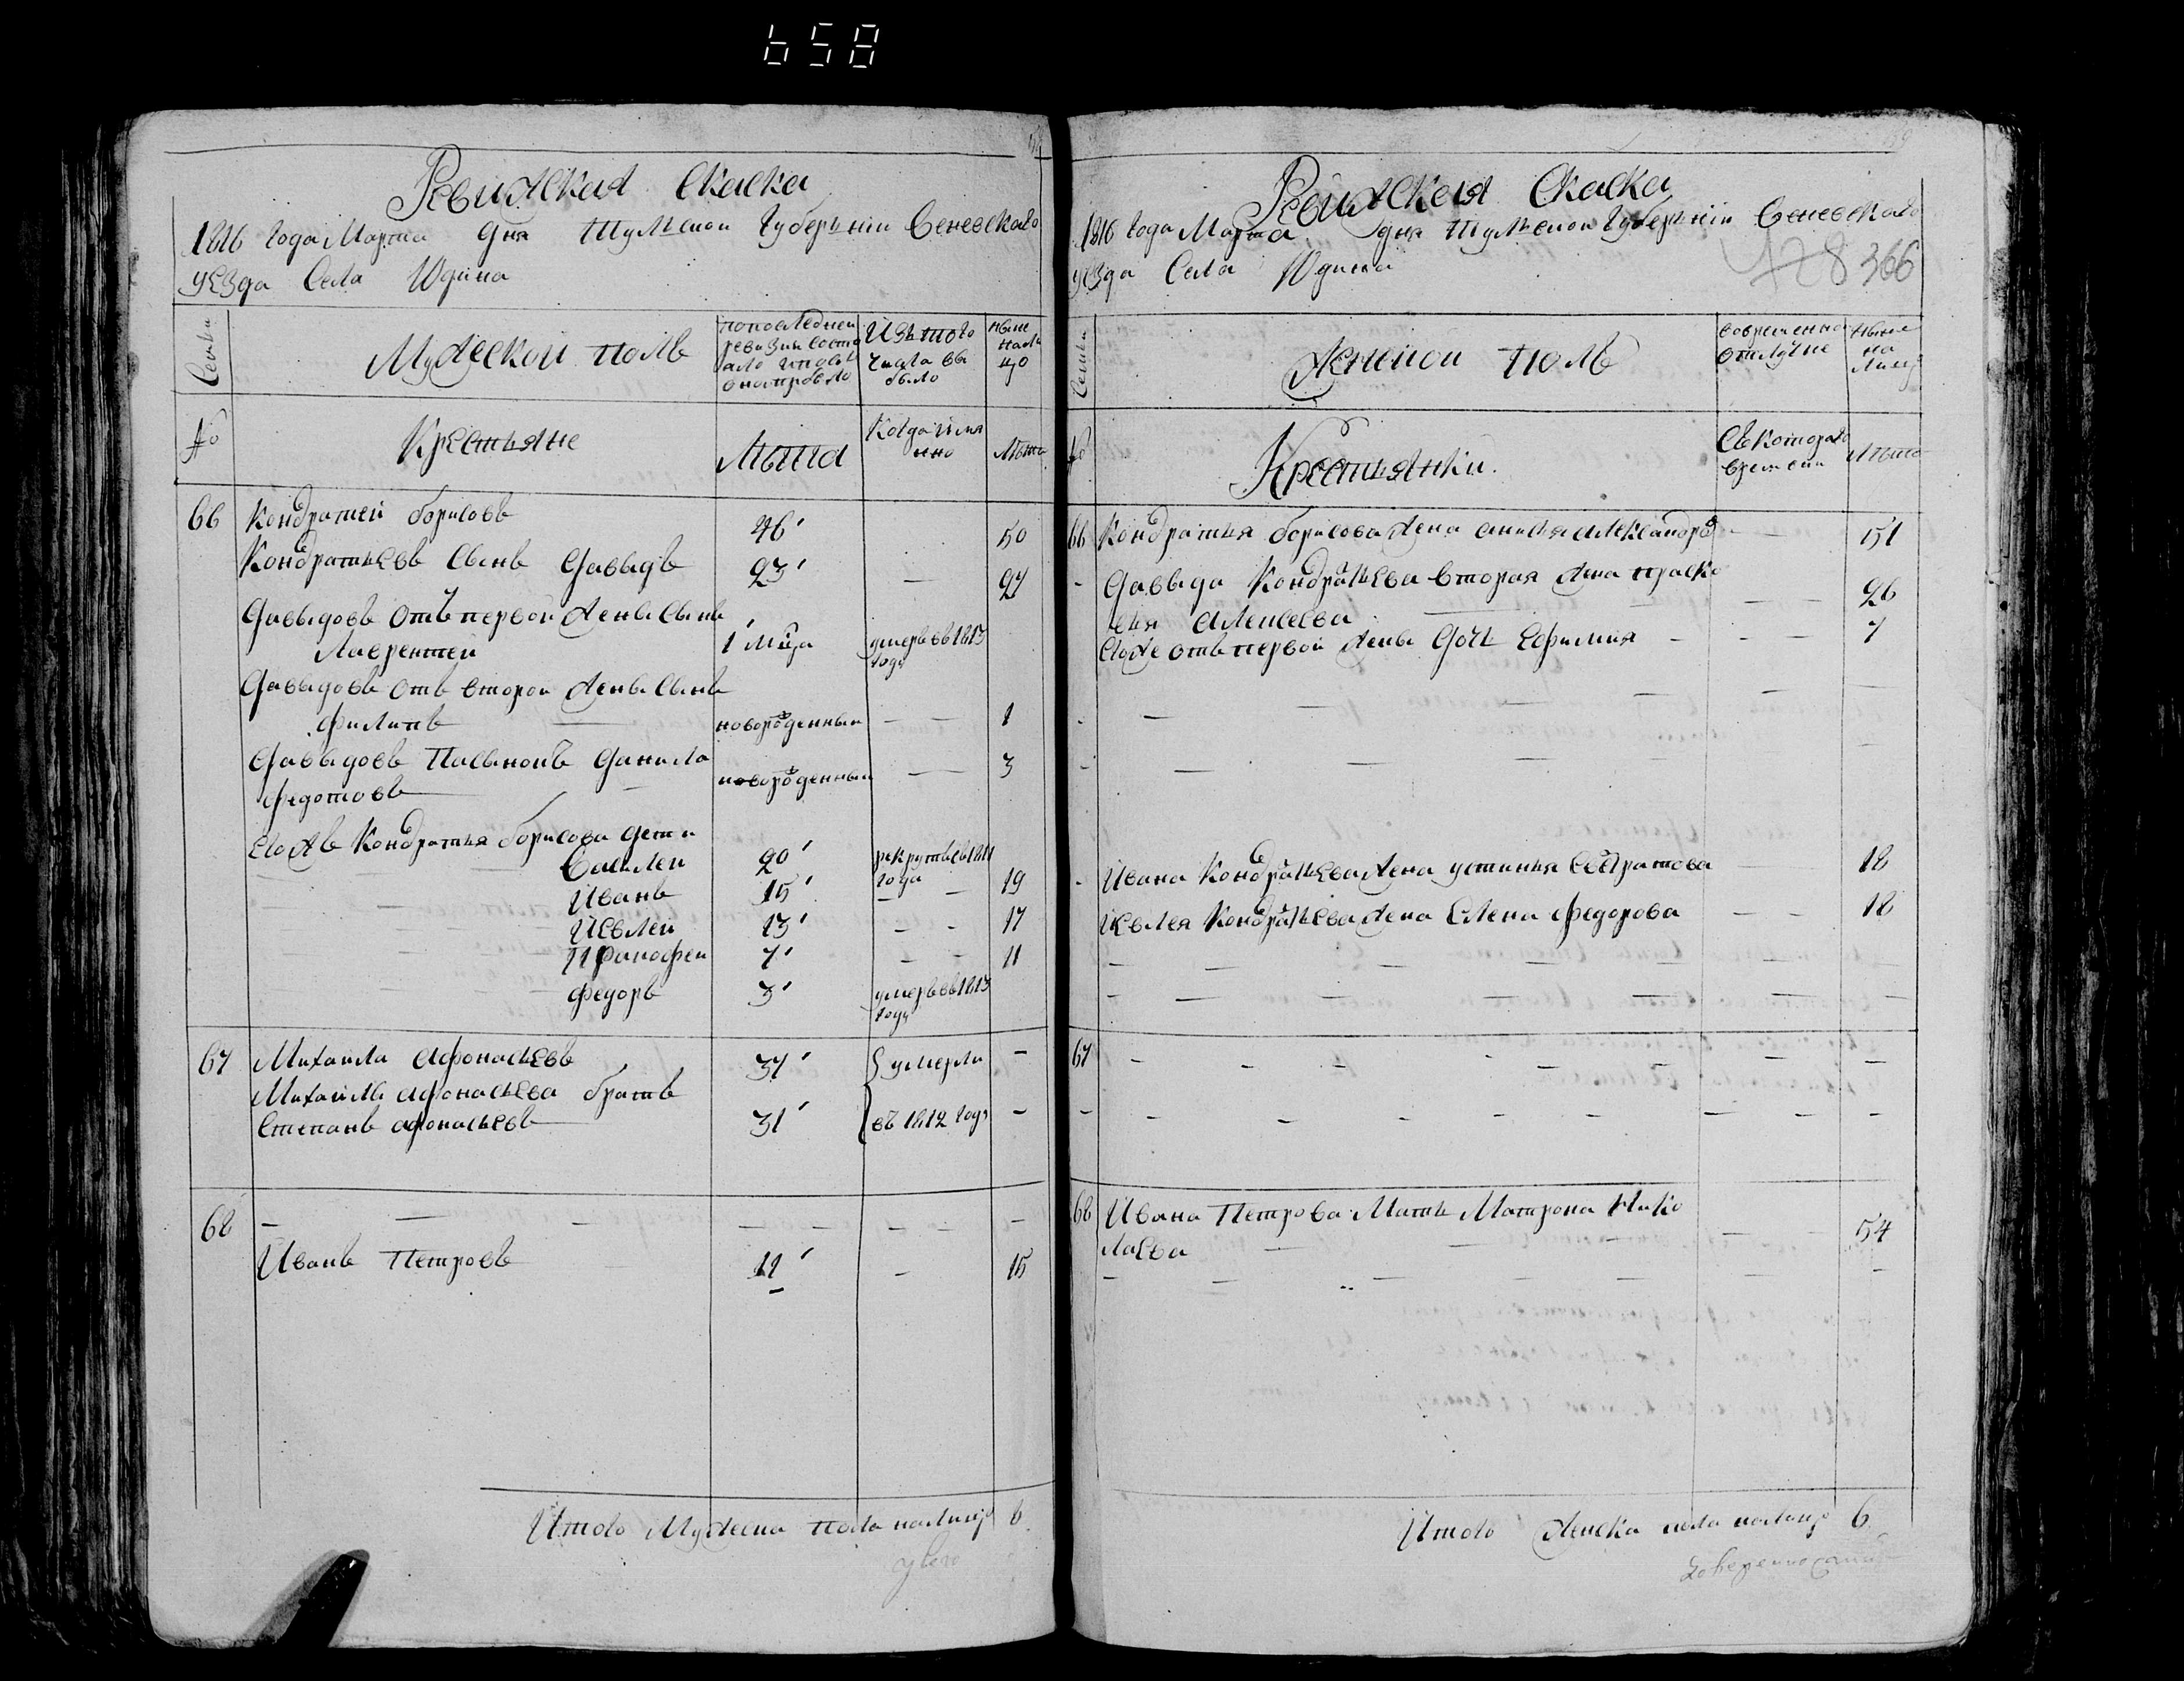 658
Ревижская Скаска
1816 Года Марта дня Тульской Губернiи Веневскаго
уезда Села Юдина
Семьи
Мужескои полъ
попоследнеи
ревизии состо
яло и после
оной прибыло
Изъ того
числа вы
было
ныне
нали
цо
№
Крестьяне
Лѣта
Когда имя
нно
Лѣта
66
Кондратей борисовъ
46
50
Кондратьевъ Сынъ Давыдъ
23
—
27
Давыдовъ отъ первой жены Сынъ
Лаврентей
1 мца
умеръ въ 1813
году
Давыдовъ отъ второй жены Сынъ
филипъ
новорожденный
— —
1
Давыдовъ Пасынокъ Данила
федотовъ
новорожденный
—
3
Его жъ Кондратья борисова дети
Василей
20
рекрутъ въ 1811
года
Иванъ
15
—
19
Иевлей
13
- -
17
И фанофеи
7
- -
11
федоръ
3
умеръ въ 1813
году
67
Михаила афонасьевъ
37
умерли
-
Михаилы афонасьева братъ
Степанъ афонасьевъ
31
въ 1812 году
-
68
Иванъ Петровъ
11
-
15
Итого Мужеска пола налицо 6
Ревижская Скаска
1816 Года Марта дня Тульской Губернiи Веневскаго
уезда Села Юдина
428 366
Семьи
Женской полъ
вовременной
отлучке
Ныне
на
лицо
№
Крестьянки
Съ котораго
времени
Лѣта
66
Кондратья борисова жена анисья александро
51
Давыда Кондратьева вторая жена праско
вья алексеева
26
Его же отъ первой жены дочь Ефимия
7
Ивана Кондратьева жена устинья Евстратова
18
Иевлея Кондратьева жена Елена федорова
18
67
68
Ивана Петрова Мать Матрона Нико
лаева
54
Итого женска пола налицо 6